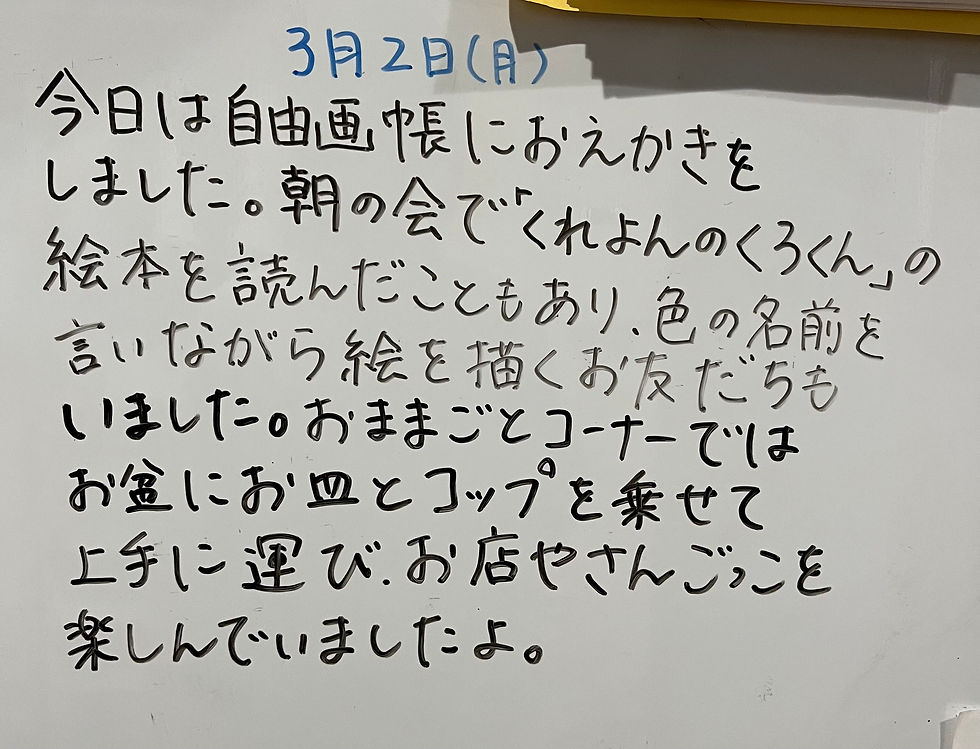 3月2日(月)
今日は自由画帳におえかきを
しました。朝の会で「くれよんのくろくん」の
絵本を読んだこともあり、色の名前を
言いながら絵を描くお友だちも
いました。おままごとコーナーでは
お盆にお皿とコップを乗せて
上手に運び、お店やさんごっこを
楽しんでいましたよ。